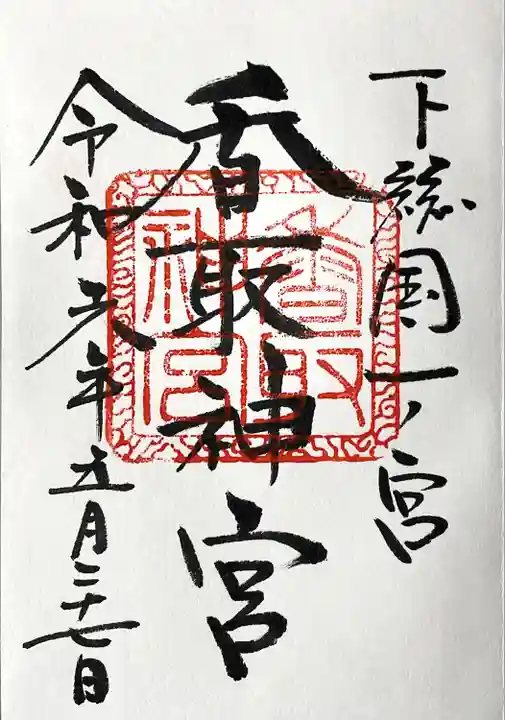 下総国一ノ宮
香取神宮
令和元年五月二十七日
香取神宮